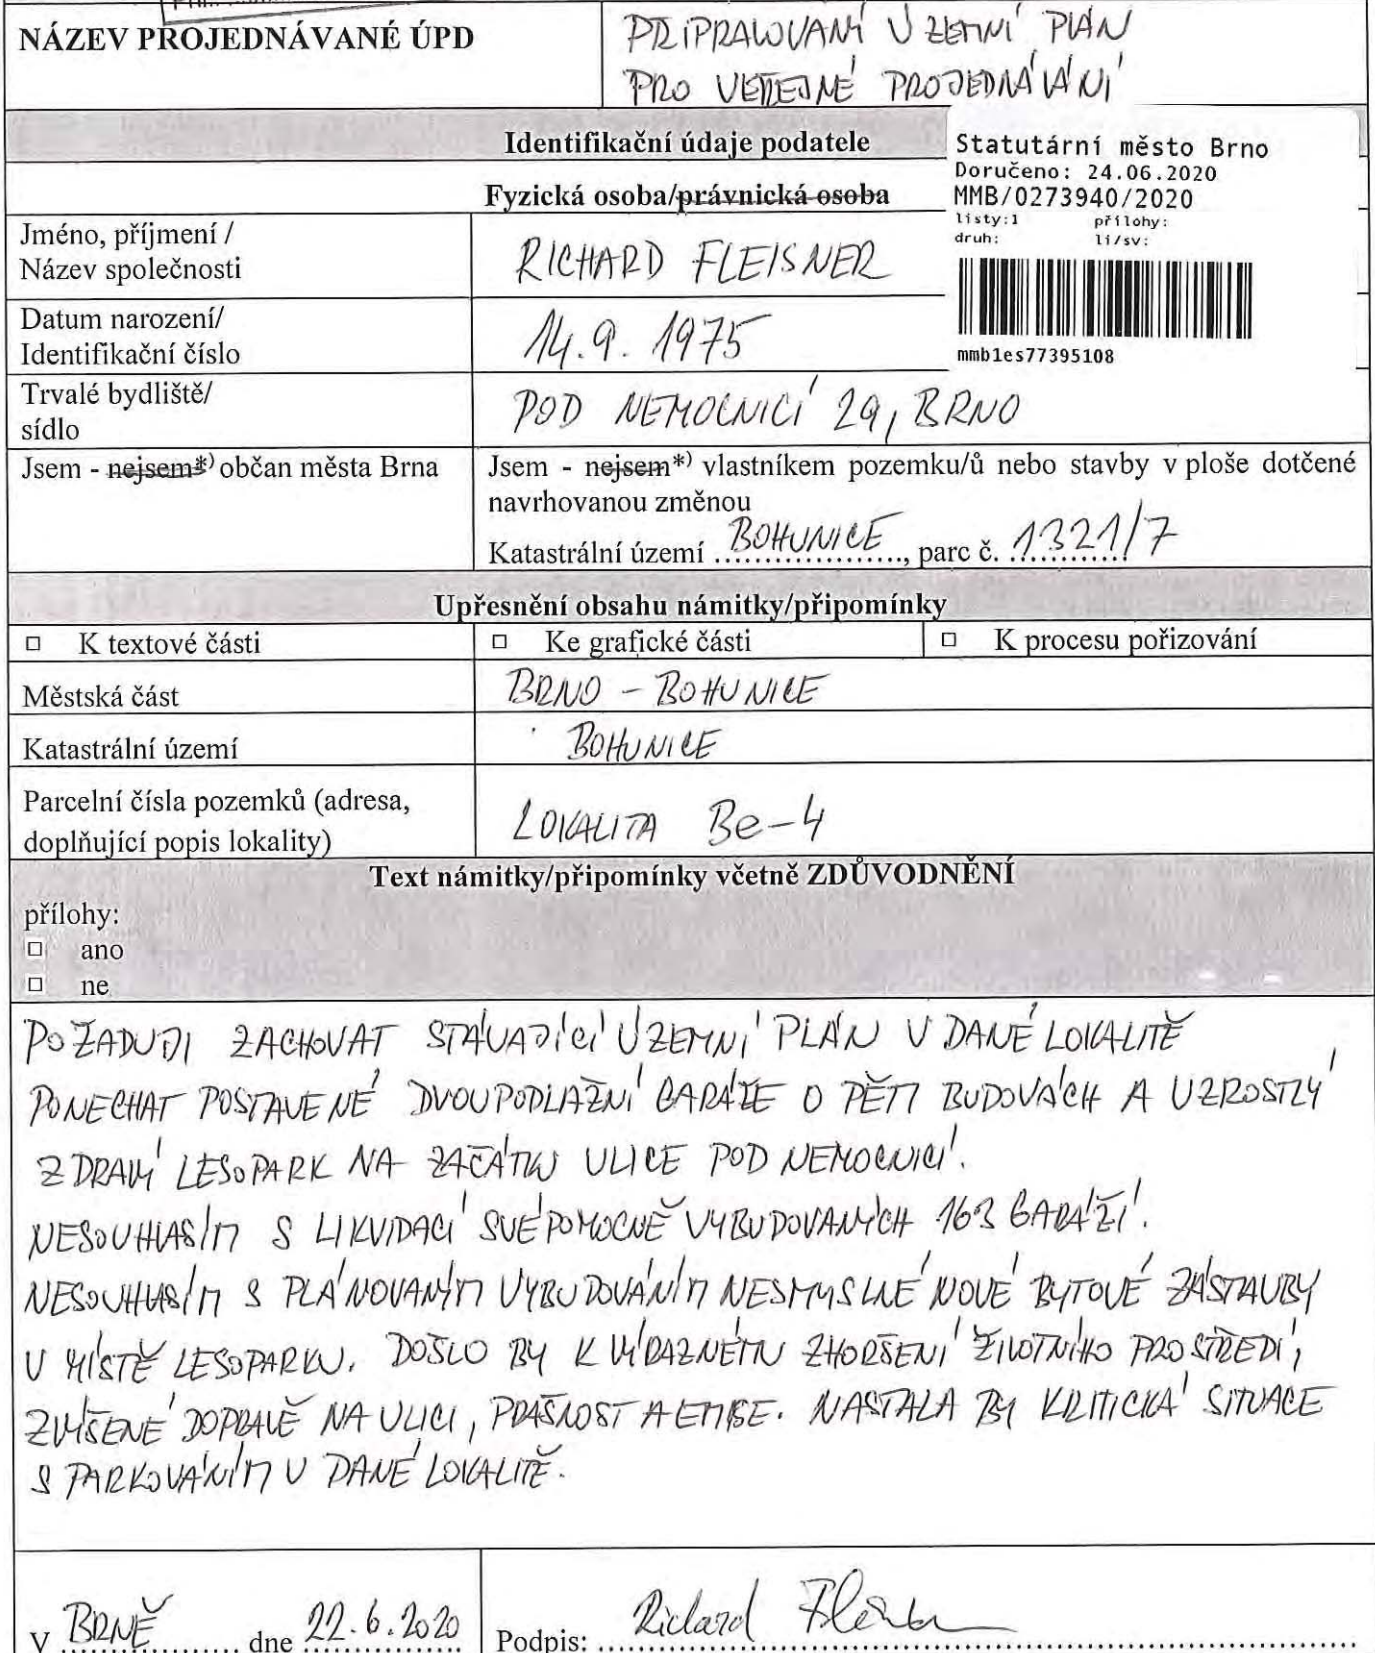 NÁZEV PROJEDNÁVANÉ ÚPD
PŘIPRAVOVANÝ ÚZEMNÍ PLÁN
PRO VEŘEJNÉ PROJEDNÁVÁNÍ
Identifikační údaje podatele
Statutární město Brno
Doručeno: 24.06.2020
MMB/0273940/2020
listy:1 přílohy:
druh: li/sv:
mmb1es77395108
Fyzická osoba/právnická osoba
Jméno, příjmení /
Název společnosti
RICHARD FLEISNER
Datum narození/
Identifikační číslo
14.9. 1975
Trvalé bydliště/
sídlo
POD NEMOCNICÍ 29, BRNO
Jsem - nejsem*) občan města Brna
Jsem - nejsem*) vlastníkem pozemku/ů nebo stavby v ploše dotčené
navrhovanou změnou
Katastrální území BOHUNICE, parc č. 1321/7
Upřesnění obsahu námitky/připomínky
□ K textové části □ Ke grafické části □ K procesu pořizování
Městská část BRNO - BOHUNICE
Katastrální území BOHUNICE
Parcelní čísla pozemků (adresa,
doplňující popis lokality)
LOKALITA Be-4
Text námitky/připomínky včetně ZDŮVODNĚNÍ
přílohy:
□ ano
□ ne
POŽADUJI ZACHOVAT STÁVAJÍCÍ ÚZEMNÍ PLÁN V DANÉ LOKALITĚ
PONECHAT POSTAVENÉ DVOUPODLAŽNÍ GARÁŽE O PĚTI BUDOVÁCH A VZROSTLÝ
ZDRAVÝ LESOPARK NA ZAČÁTKU ULICE POD NEMOCNICÍ.
NESOUHLASÍM S LIKVIDACÍ SVÉPOMOCNĚ VYBUDOVANÝCH 163 GARÁŽÍ.
NESOUHLASÍM S PLÁNOVANÝM VYBUDOVÁNÍM NESMYSLNÉ NOVÉ BYTOVÉ ZÁSTAVBY
V MÍSTĚ LESOPARKU. DOŠLO BY K VÝRAZNÉMU ZHORŠENÍ ŽIVOTNÍHO PROSTŘEDÍ,
ZVÝŠENÉ DOPRAVĚ NA ULICI, PRAŠNOST A EMISE. NASTALA BY KRITICKÁ SITUACE
S PARKOVÁNÍM V DANÉ LOKALITĚ.
V BRNĚ dne 22.6.2020 Podpis: Richard